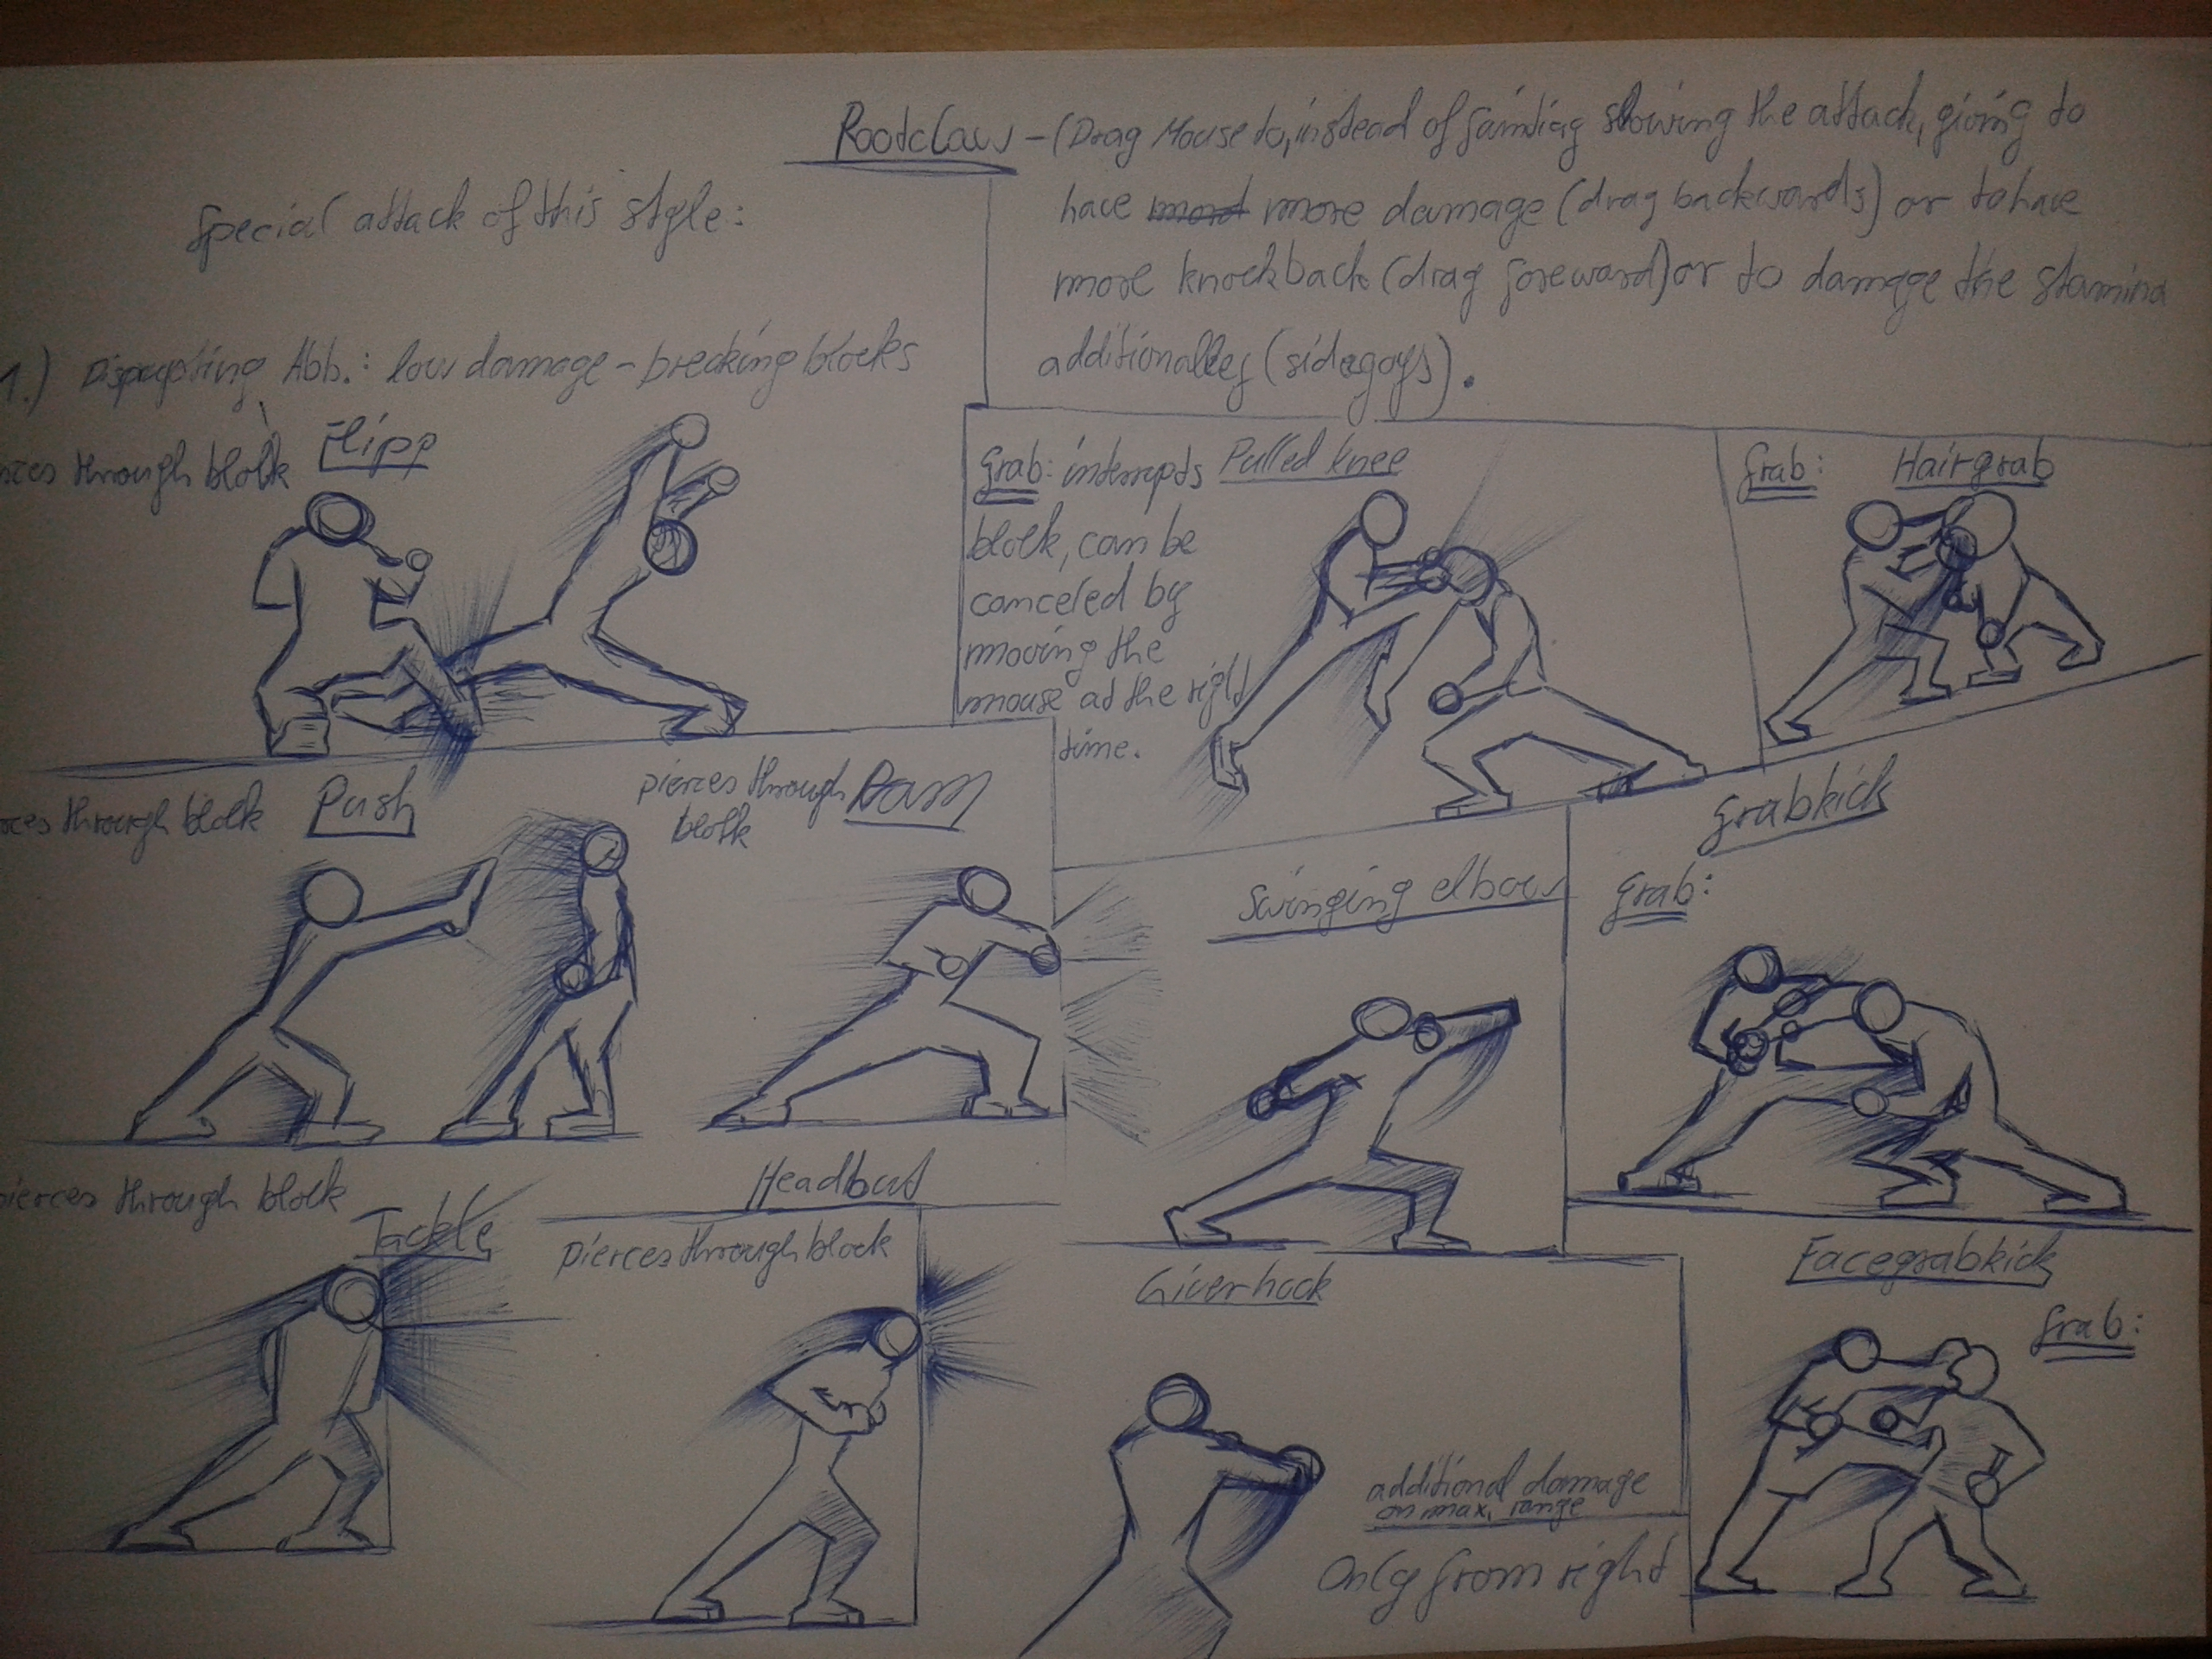 Rootclaw - (Drag Mouse to, instead of fainting slowing the attack, giving to
have more damage (drag backwards) or to have
more knockback (drag foreward) or to damage the stamina
additionalley (sidegoys).
Special attack of this style:
1.) Disrupting Abb.: low damage - breaking blocks
through block Flipp
Grab: interrupts Pulled knee
block, can be
canceled by
moving the
mouse at the right
time.
Grab: Hairgrab
through block Push
pierces through Ram
block
Swinging elbow
Grabkick
Grab:
pierces through block
Tackle
Headbut
pierces through block
Liverhook
additional damage
on max. range
Only from right
Facegrabkick
Grab: